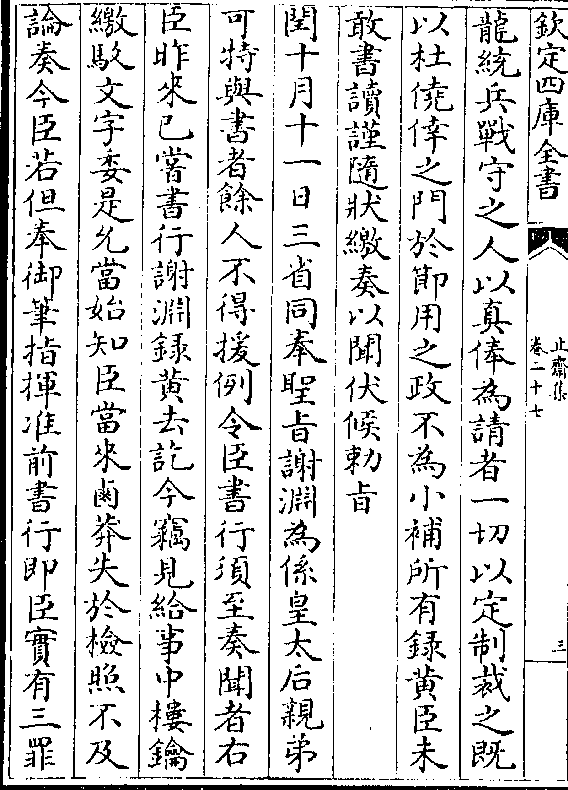 欽定四庫全書
止齋集
卷二十七
三
龍統兵戰守之人以真俸為請者一切以定制裁之既
以杜僥倖之門於節用之政不為小補所有錄黃臣未
敢書讀謹隨狀繳奏以聞伏候勅旨
閏十月十一日三省同奉聖旨謝淵為係皇太后親弟
可特與書者餘人不得援例令臣書行須至奏聞者右
臣昨來已嘗書行謝淵錄黃去訖今竊見給事中樓鑰
繳駮文字委是允當始知臣當來鹵莽失於檢照不及
論奏今臣若但奉御筆指揮准前書行即臣實有三罪